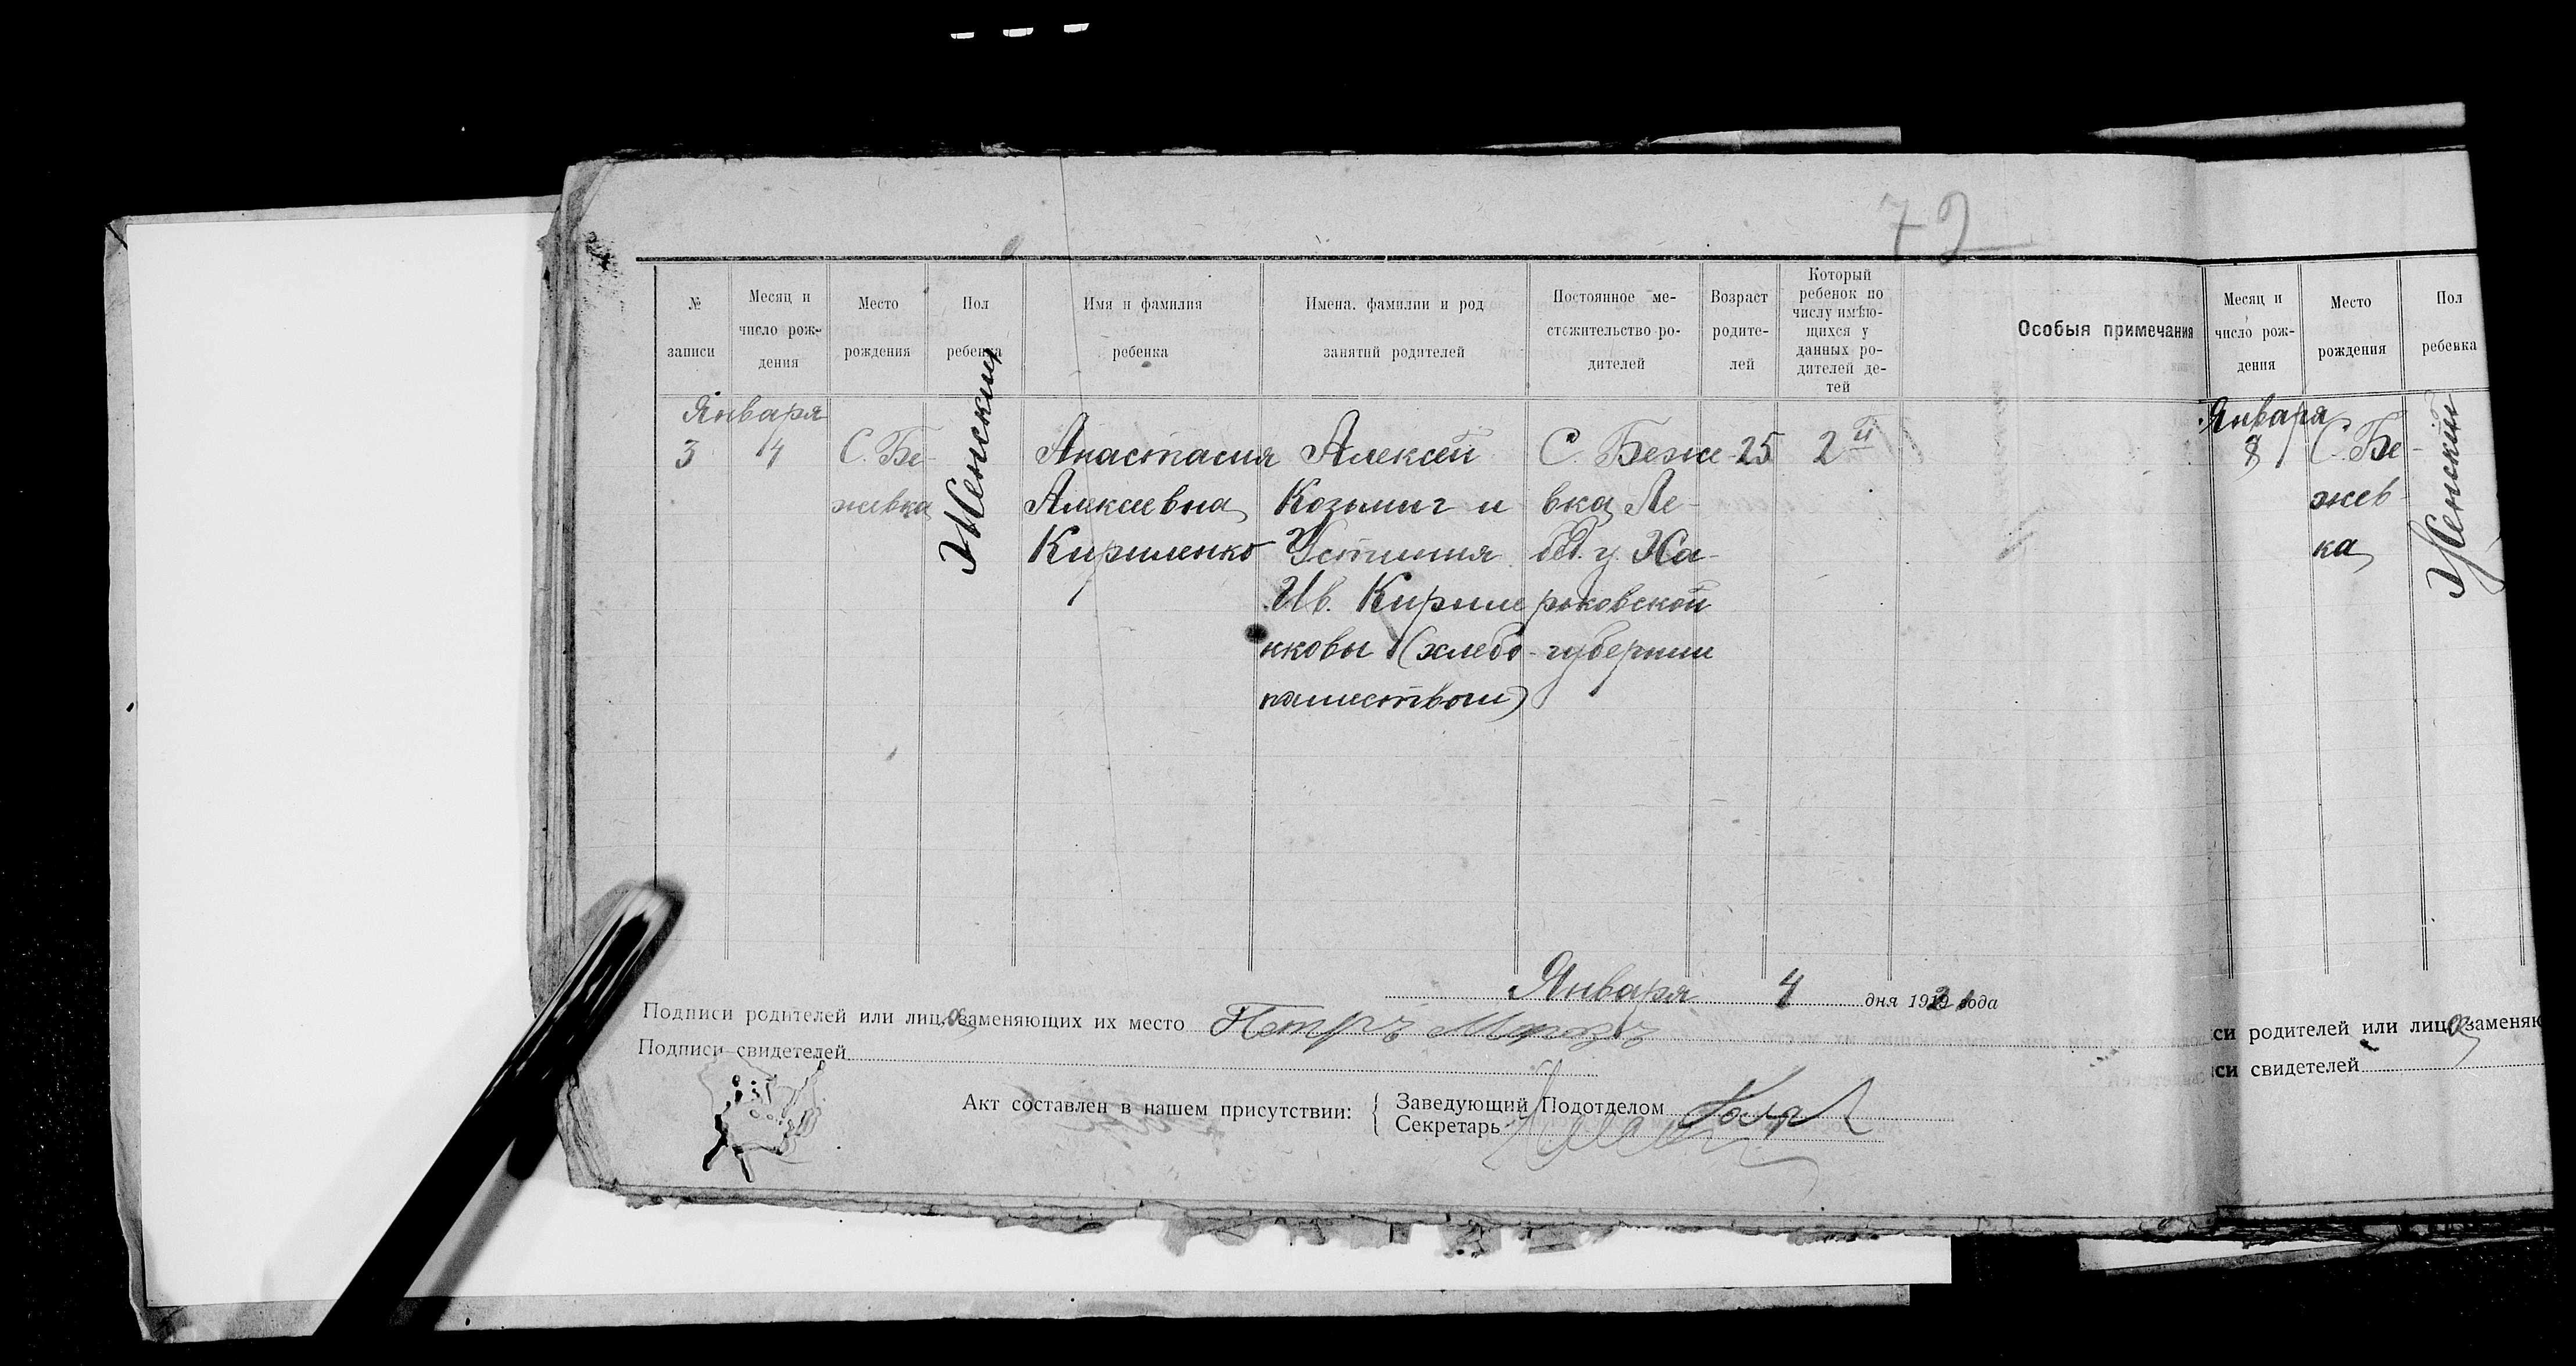 72
№ записи
Месяц и число рождения
Место рождения
Пол ребенка
Имя и фамилия ребенка
Имена, фамилии и род занятий родителей
Постоянное местожительство родителей
Возраст родителей
Который ребенок по числу имѣющихся у данных родителей детей
Особыя примечания
Января
3
4
С. Бе-
жевка
Женский
Анастасия
Алексеевна
Кириленко
Алексей
Козьмич и
Устиния
Ив. Кириле
нковы (хлебо-
пашеством)
С. Беже-
вка, Ле-
беd. у. Ха-
рьковской
губернии
25
2й
Января 4 дня 1921 года
Подписи родителей или лица заменяющих их место Петръ Морозъ
Подписи свидетелей
Акт составлен в нашем присутствии:
Заведующий Подотделом
Секретарь
Месяц и число рождения
Место рождения
Пол ребенка
Января
8
С. Бе-
жев
ка
Женский
си родителей или лица заменяю
си свидетелей